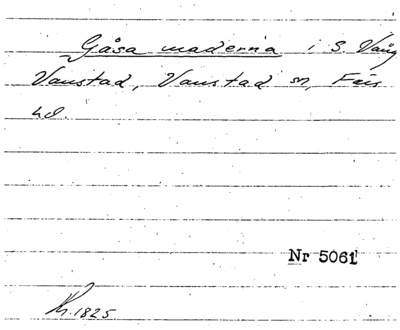 Gåsa maderna i S. Vång
Vanstad, Vanstad sn, Färs
hd.
Nr 5061
Kr. 1825